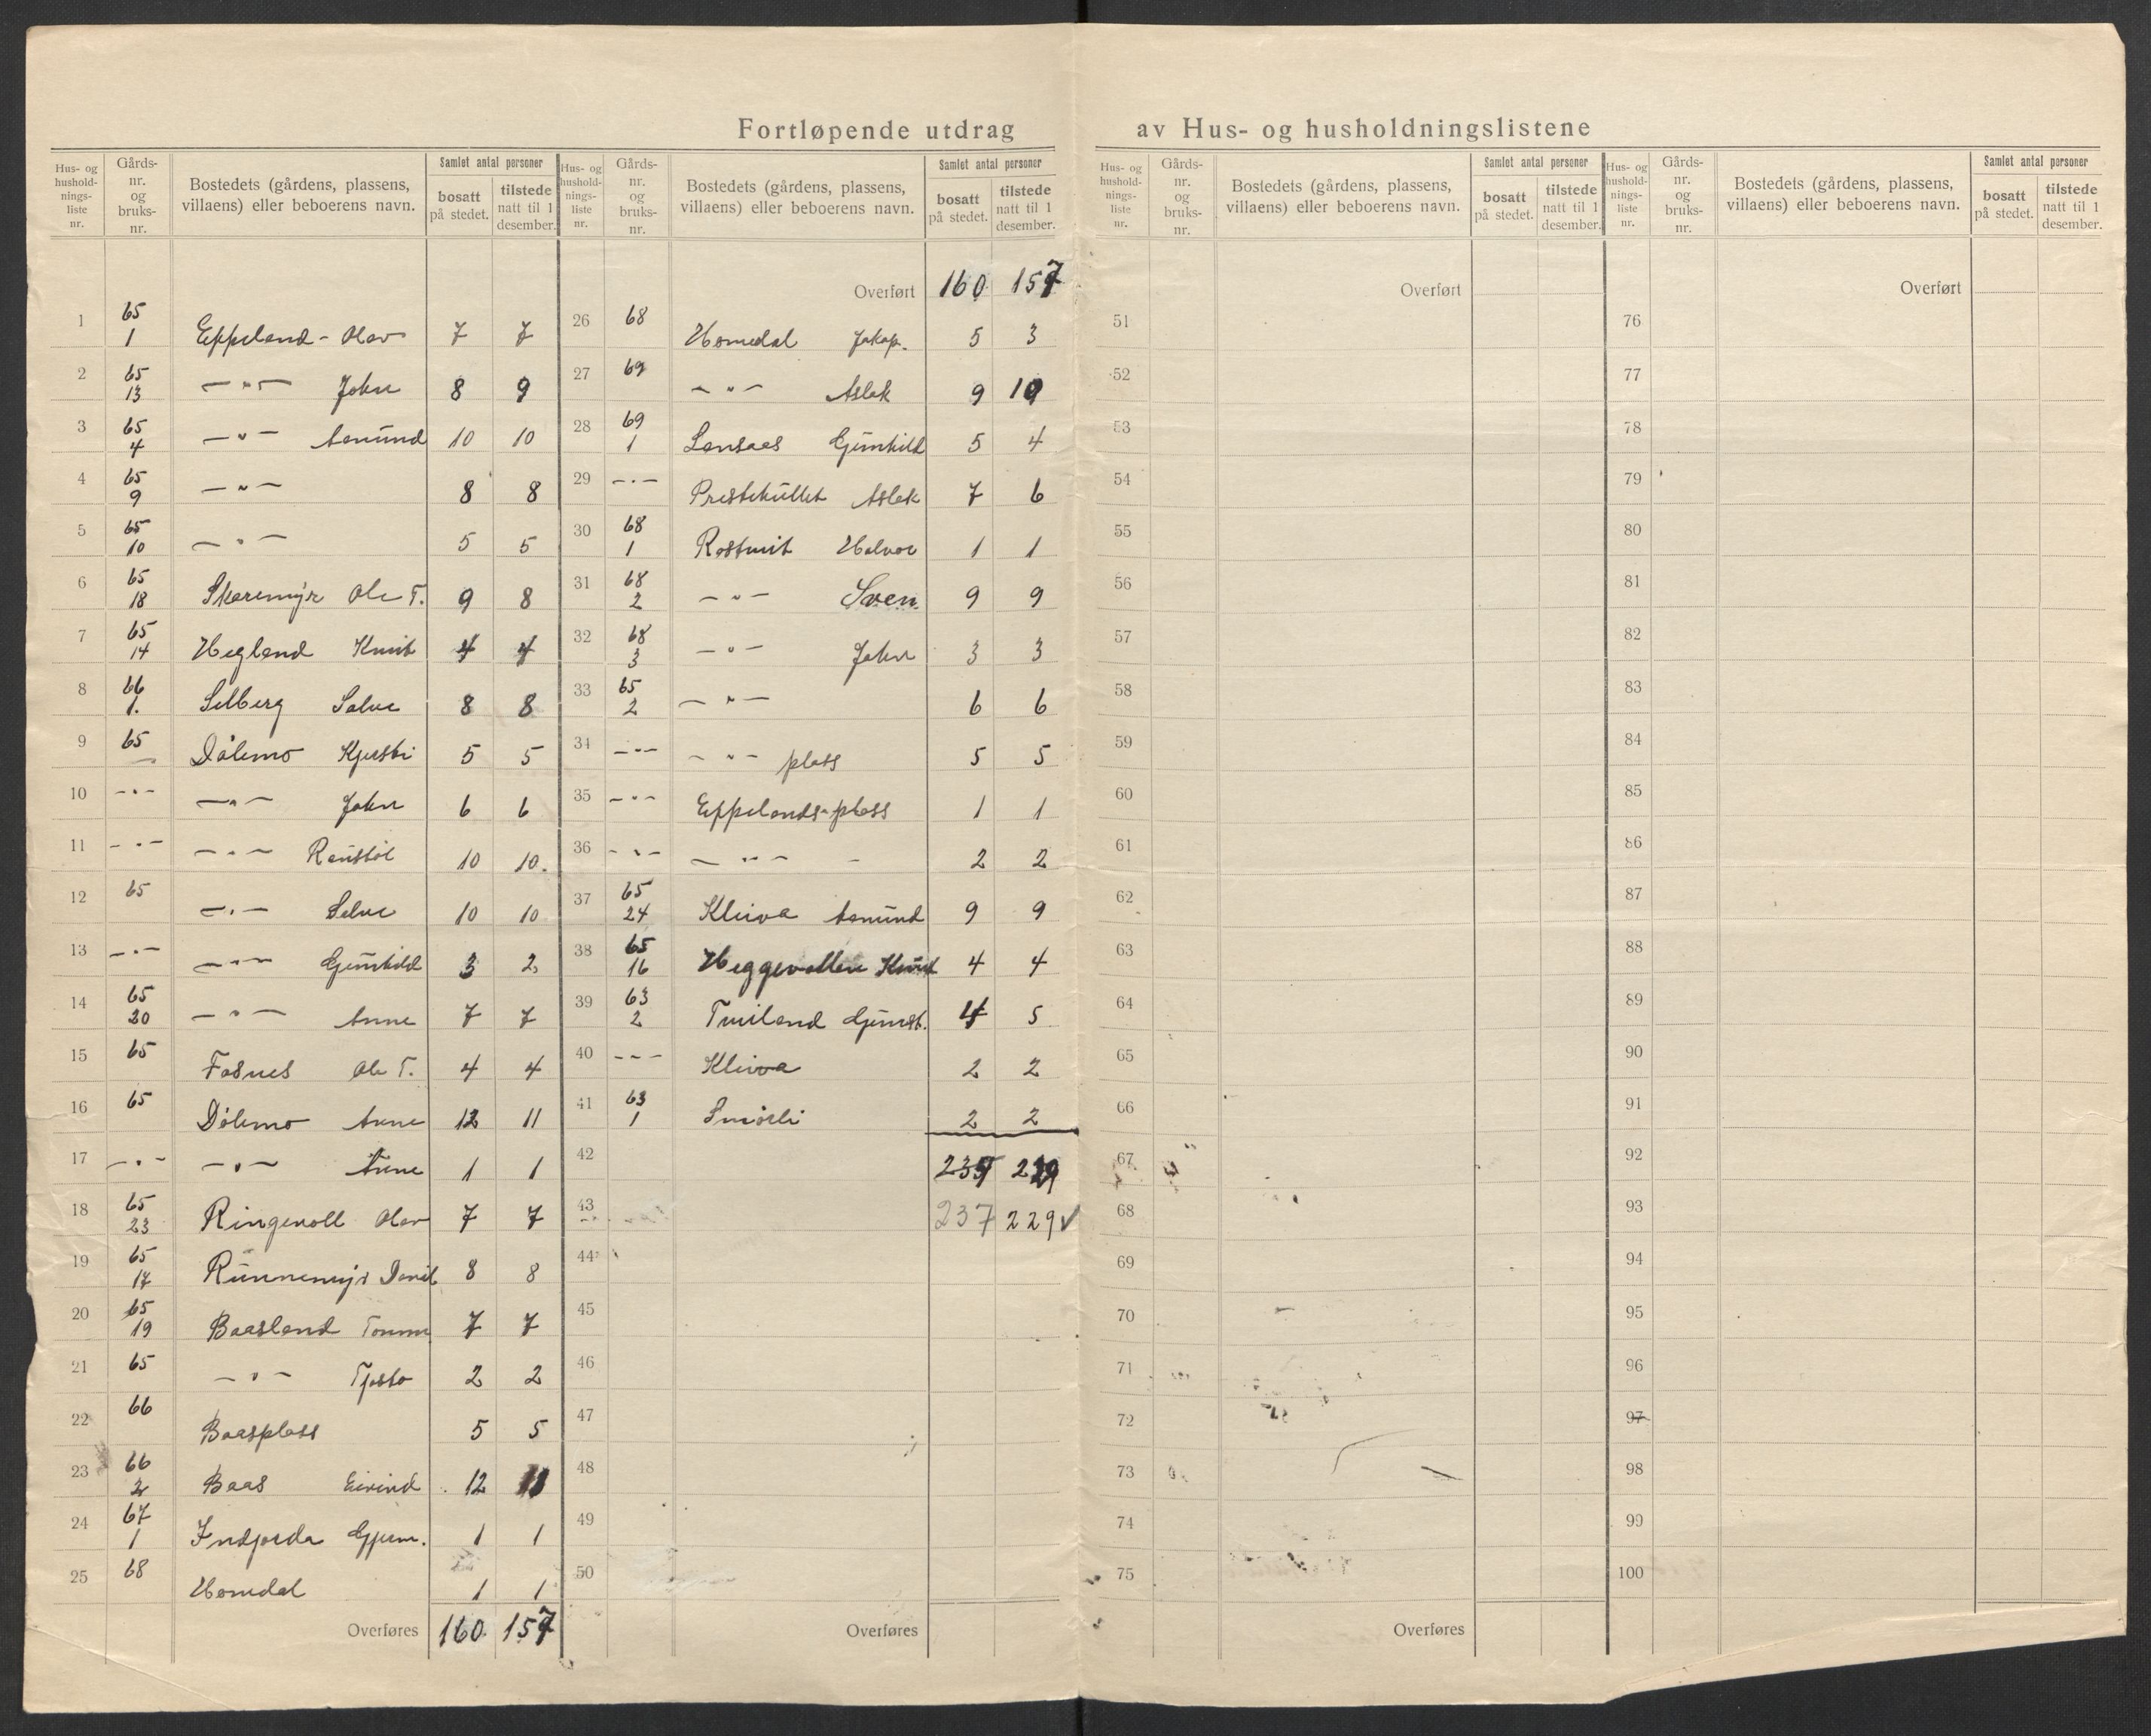 Fortløpende utdrag av Hus- og husholdningslistene
Hus- og hushold-nings-liste nr. Gårds-nr. og bruks-nr. Bostedets (gårdens, plassens, villaens) eller beboerens navn. Samlet antal personer bosatt på stedet. tilstede natt til 1 desember.
1 65 1 Eppeland - Olav 7 7
2 65 13 — " — John 8 9
3 65 4 — " — Aamund 10 10
4 65 9 — " — 8 8
5 65 10 — " — 5 5
6 65 18 Skaremyr Ole T. 9 8
7 65 14 Hegland Knut 4 4
8 66 1. Selberg Salve 8 8
9 65 Dålemo Kjersti 5 5
10 — " — — " — John 6 6
11 — " — — " — Raustøl 10 10.
12 65 — " — Salve 10 10
13 — " — — " — Gunhild 3 2
14 65 20 — " — Anne 7 7
15 65 Fosnes Ole T. 4 4
16 65 Dålemo Anne 12 11
17 — " — — " — Anne 1 1
18 65 23 Ringevoll Olav 7 7
19 65 17 Runnemyr David 8 8
20 65 19 Baasland 7 7
21 65 — " — Tjøsto 2 2
22 66 Baasplass 5 5
23 66 2 Baas Eivind 12 11
24 67 1 Indjorda Gjerm. 1 1
25 68 Homdal 1 1
Overføres 160 157
Hus- og hushold-nings-liste nr. Gårds-nr. og bruks-nr. Bostedets (gårdens, plassens, villaens) eller beboerens navn. Samlet antal personer bosatt på stedet. tilstede natt til 1 desember.
Overført 160 157
26 68 Homedal Jakop. 5 3
27 69 — " — Aslak 9 10
28 69 1 Lansaas Gunhild 5 4
29 — " — Prestekullet Aslak 7 6
30 68 1 Rostveit Halvor 1 1
31 68 2 — " — Sven 9 9
32 68 3 — " — John 3 3
33 65 2 — " — 6 6
34 — " — — " — plass 5 5
35 — " — Eppelands-plass 1 1
36 — " — — " — - 2 2
37 65 24 Kleiva Aamund 9 9
38 65 16 Heggevollen Knut 4 4
39 63 2 Tveiland Gunst. 4 5
40 — - — Kleiva 2 2
41 63 1 Smørli 2 2
42 237 229
43 237 229 ✓
44
45
46
47
48
49
50
Overføres
Hus- og hushold-nings-liste nr. Gårds-nr. og bruks-nr. Bostedets (gårdens, plassens, villaens) eller beboerens navn. Samlet antal personer bosatt på stedet. tilstede natt til 1 desember.
Overført
51
52
53
54
55
56
57
58
59
60
61
62
63
64
65
66
67
68
69
70
71
72
73
74
75
Overføres
Hus- og hushold-nings-liste nr. Gårds-nr. og bruks-nr. Bostedets (gårdens, plassens, villaens) eller beboerens navn. Samlet antal personer bosatt på stedet. tilstede natt til 1 desember.
Overført
76
77
78
79
80
81
82
83
84
85
86
87
88
89
90
91
92
93
94
95
96
97
98
99
100